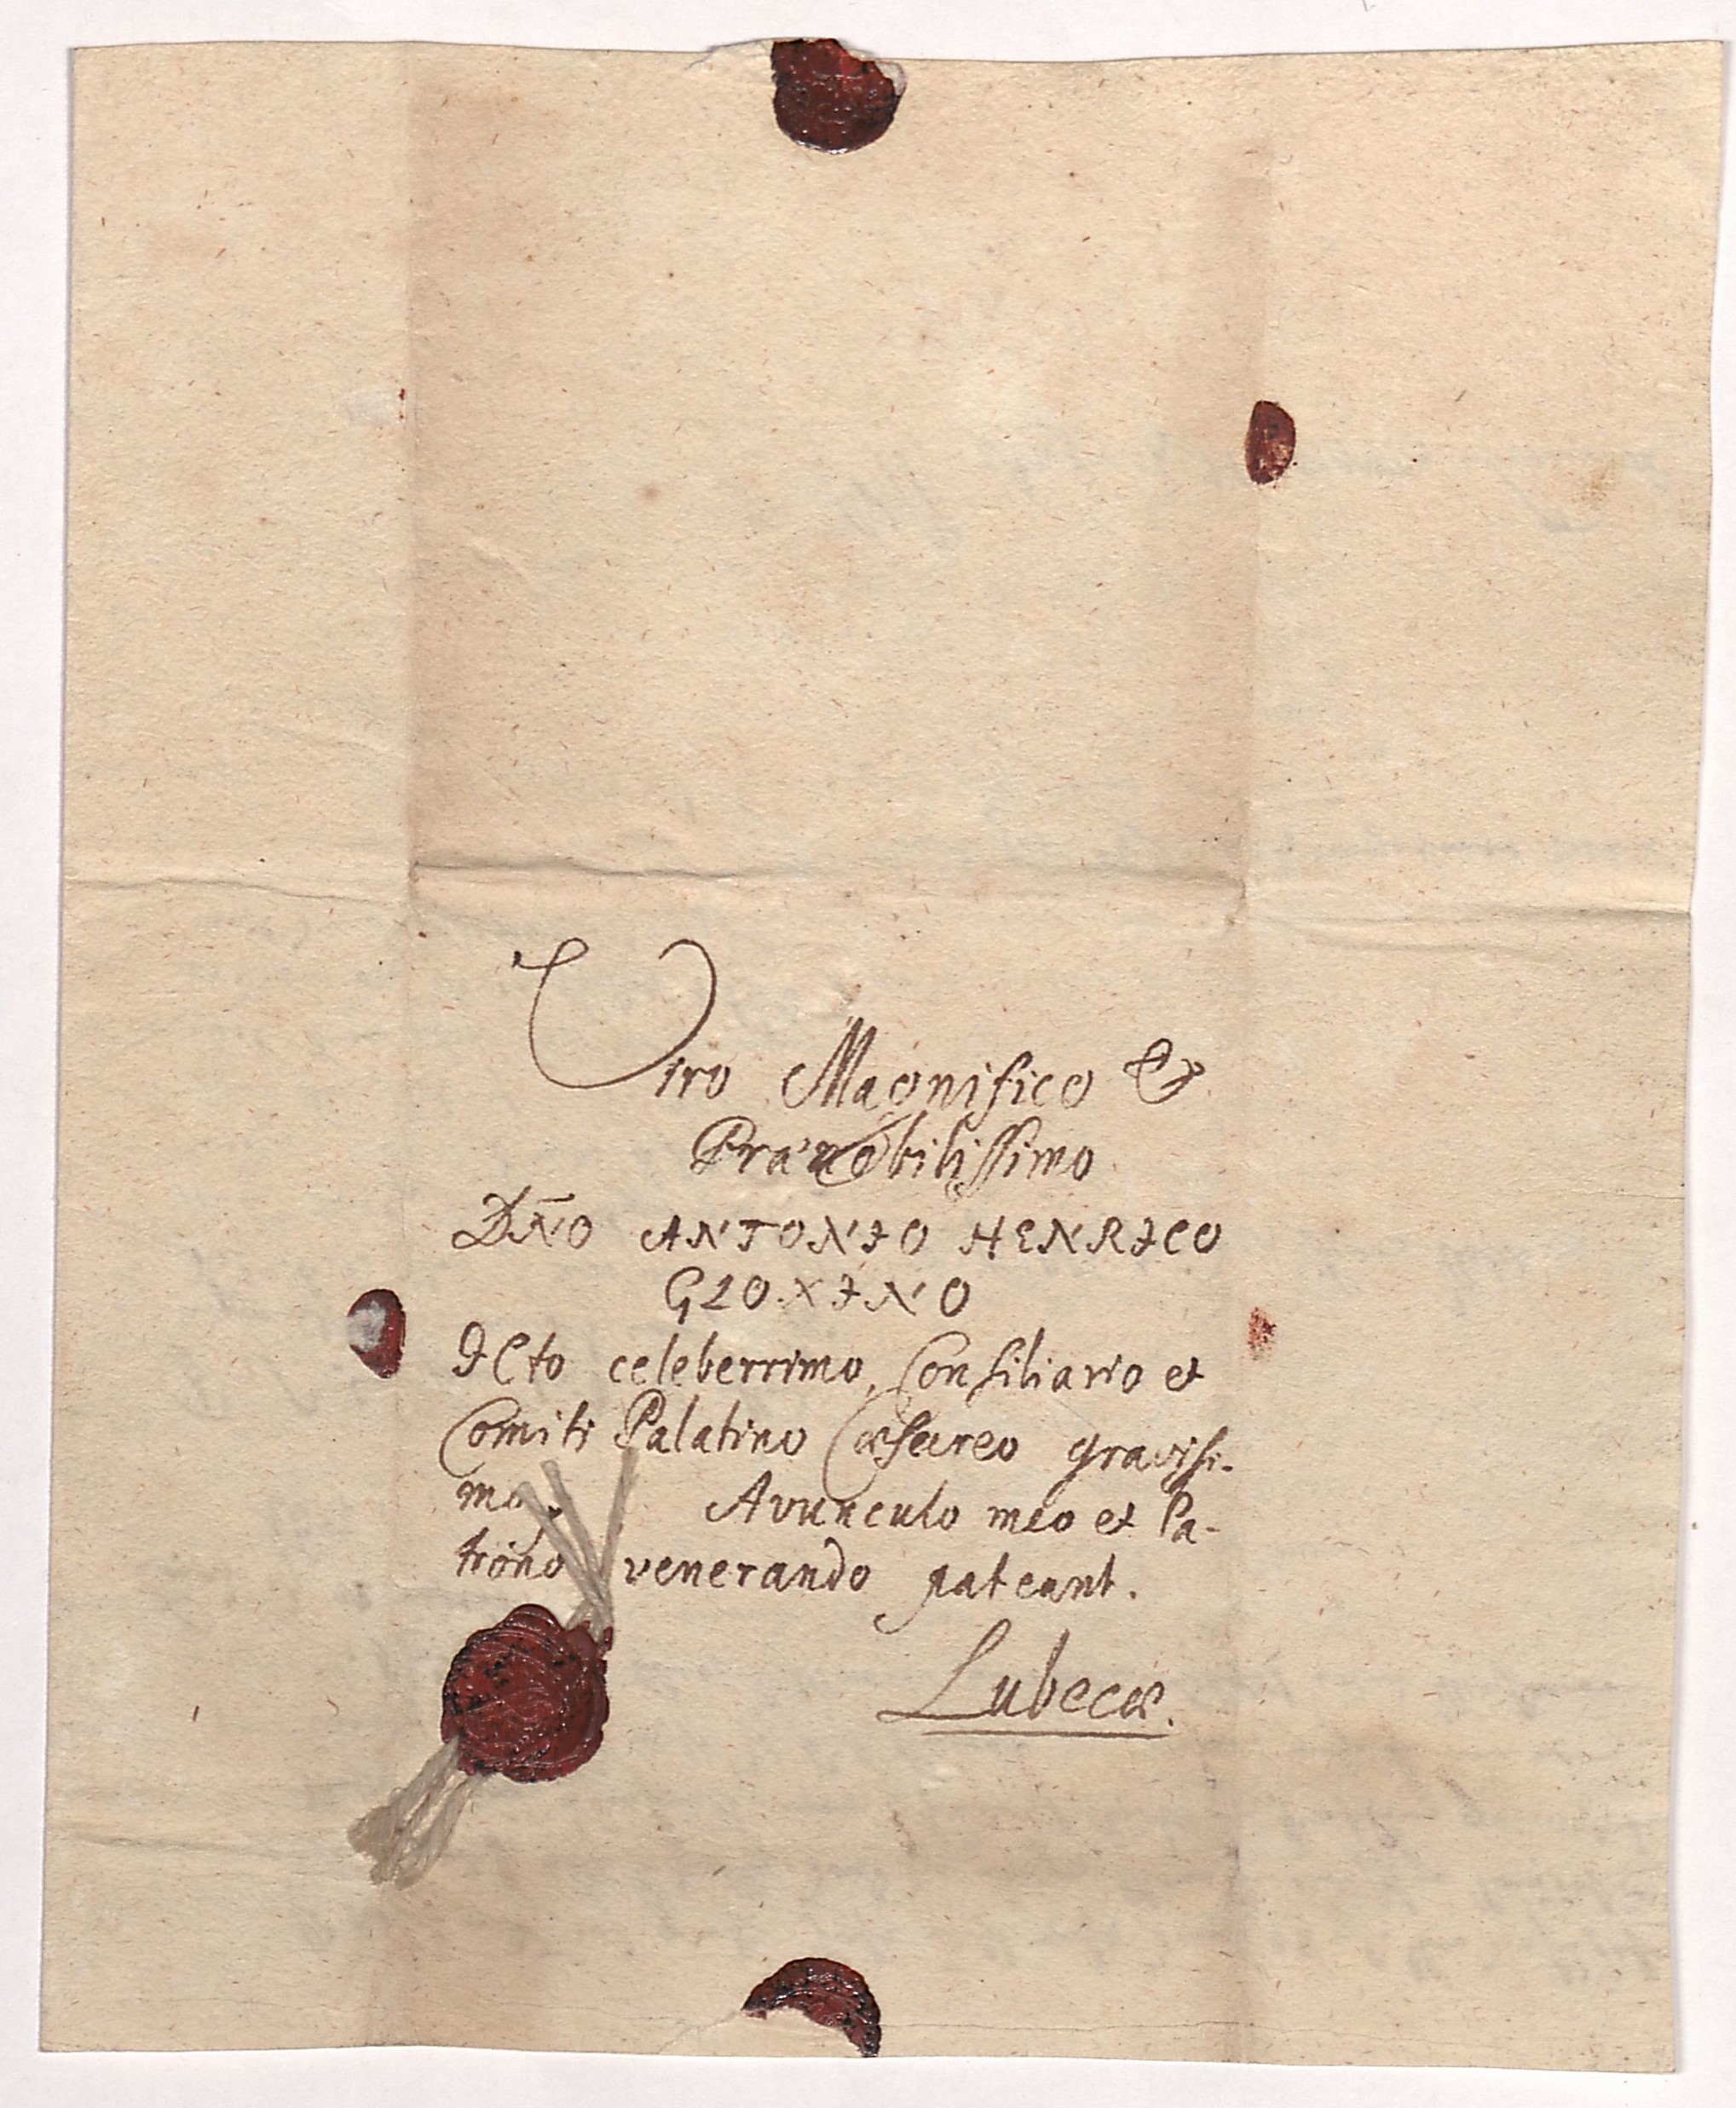 Viro Magnifico &
Prænobilissimo
DN̄O ANTONIO HENRICO
GLOXINO
ICto celeberrimo, Consiliario et
Comiti Palatino Cæsareo gravissi-
mo. Avunculo meo et Pa-
trono venerando pateant.
Lubecæ.